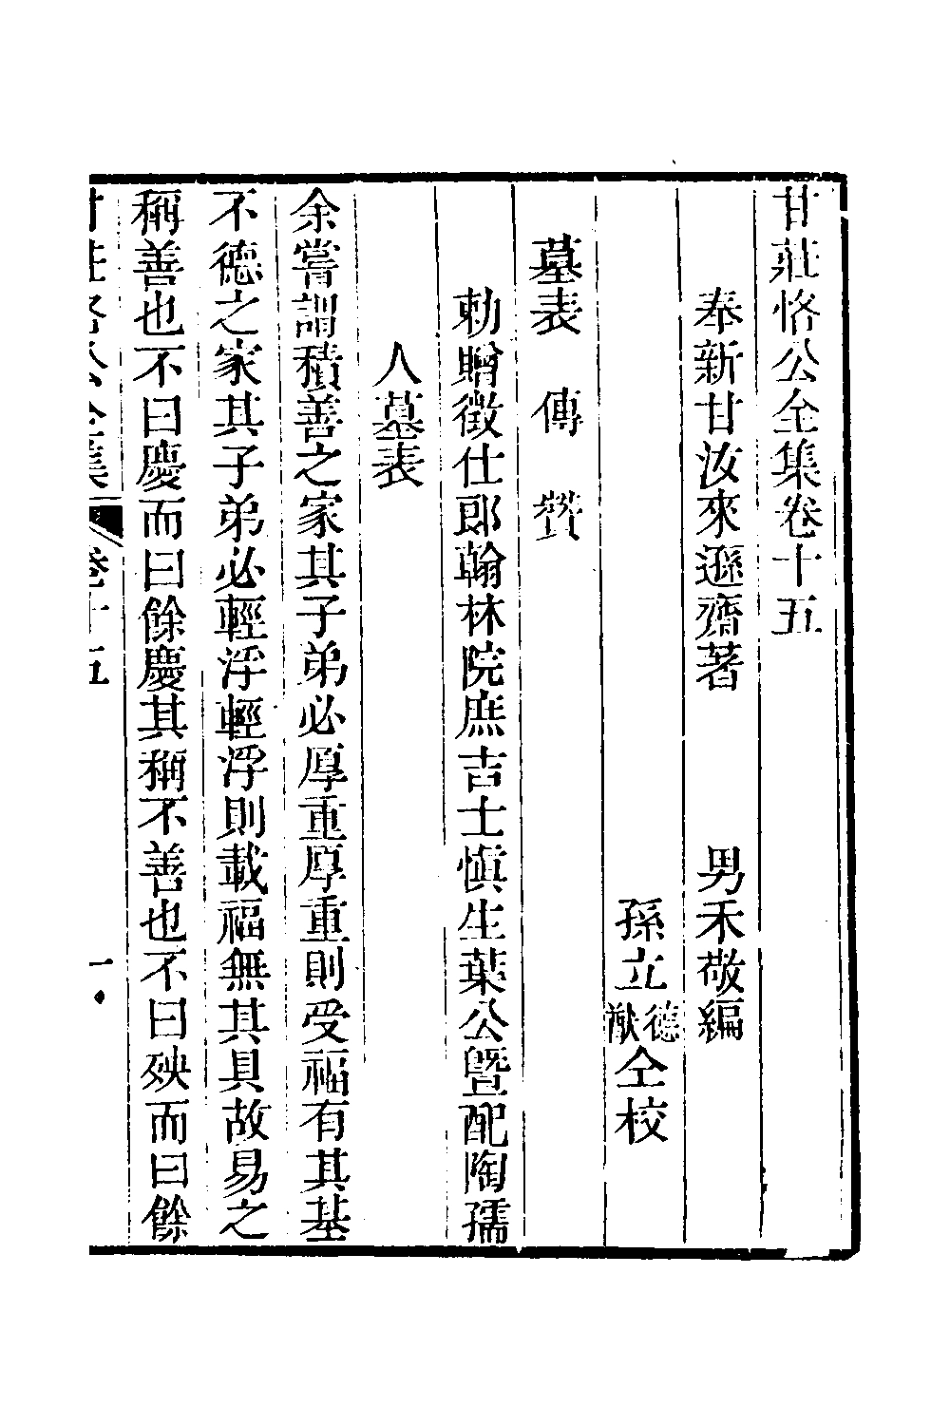 甘莊恪公全集卷十五
奉新甘汝來遜齋著　　男禾敬編
孫立德猷仝校
墓表　傳　贊
勅贈徵仕郎翰林院庶吉士慎生葉公曁配陶孺
人墓表
余嘗謂積善之家其子弟必厚重厚重則受福有其基
不德之家其子弟必輕浮輕浮則載福無其具故易之
稱善也不曰慶而曰餘慶其稱不善也不曰殃而曰餘
甘莊恪公全集　卷十五　一